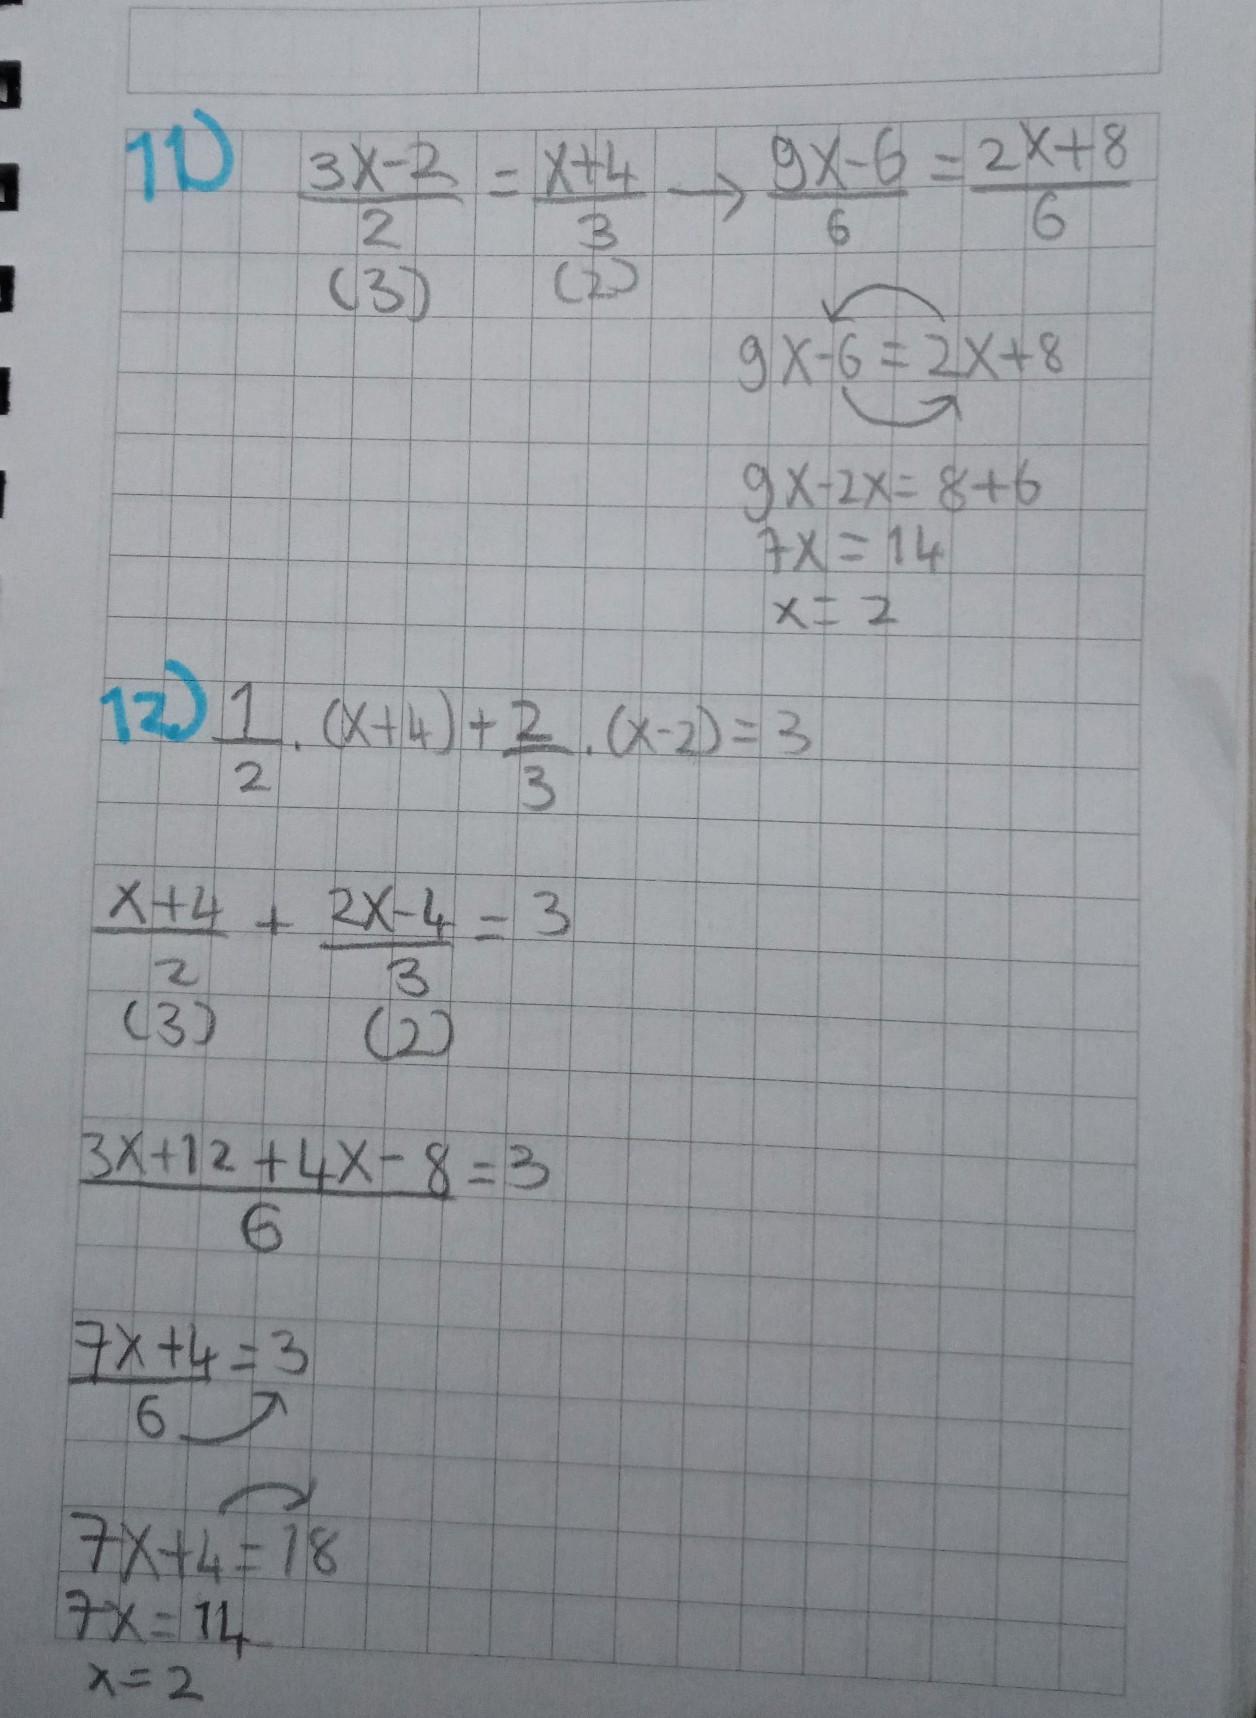 11) (3x-2)/2 = (x+4)/3 → (9x-6)/6 = (2x+8)/6
(3) (2)
9x-6=2x+8
9x-2x=8+6
7x=14
x=2
12) 1/2 . (x+4) + 2/3 . (x-2) = 3
(x+4)/2 + (2x-4)/3 = 3
(3) (2)
(3x+12+4x-8)/6 = 3
(7x+4)/6 = 3
7x+4=18
7x=14
x=2